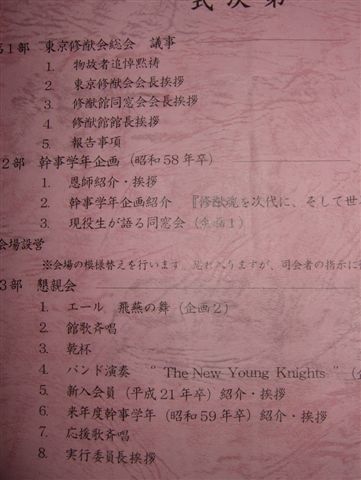 式次第
第1部 東京修猷会総会 議事
1. 物故者追悼黙祷
2. 東京修猷会会長挨拶
3. 修猷館同窓会会長挨拶
4. 修猷館館長挨拶
5. 報告事項
2部 幹事学年企画 (昭和58年卒)
1. 恩師紹介・挨拶
2. 幹事学年企画紹介 『修猷魂を次代に、そして世
3. 現役生が語る同窓会 (企画1)
会場設営
※会場の模様替えを行います。恐れ入りますが、司会者の指示に
3部 懇親会
1. エール 飛燕の舞 (企画2)
2. 館歌斉唱
3. 乾杯
4. バンド演奏 “The New Young Knights” (
5. 新入会員 (平成21年卒) 紹介・挨拶
6. 来年度幹事学年 (昭和59年卒) 紹介・挨拶
7. 応援歌斉唱
8. 実行委員長挨拶